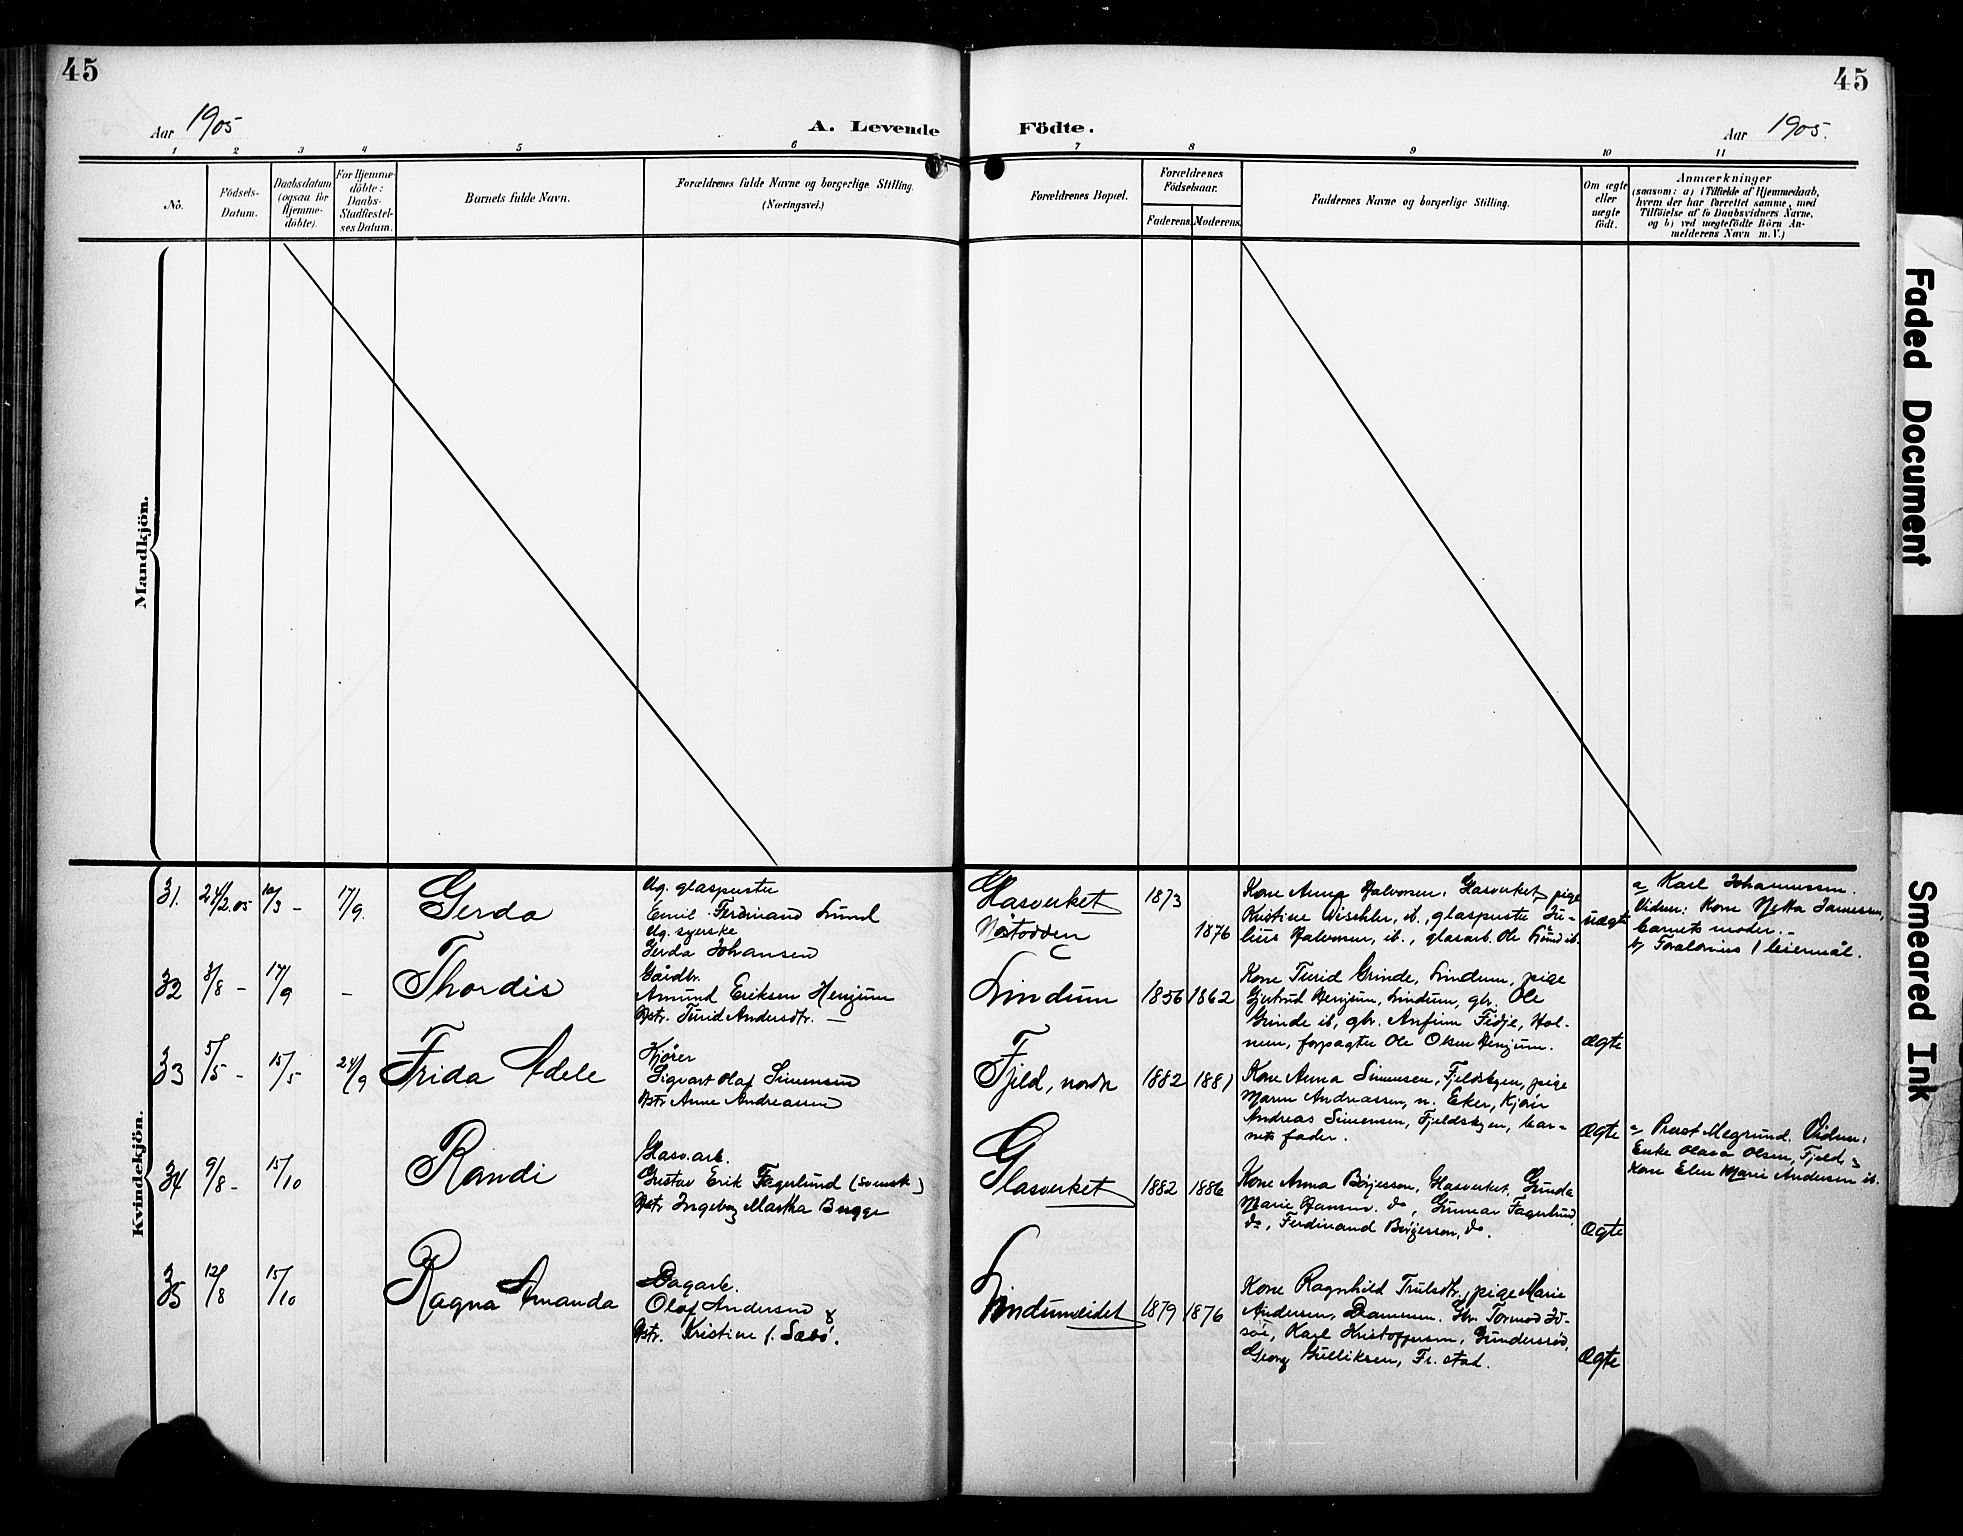 45
45
Aar 1905
A. Levende
Födte.
Aar 1905.
1
2
3
4
5
6
7
8
9
10
11
No.
Födsels-
Datum.
Daabsdatum
(ogsaa for
Hjemme-
döbte).
For Hjemme-
döbte:
Daabs-
Stadfæstel-
ses Datum.
Barnets fulde Navn.
Forældrenes fulde Navne og borgerlige Stilling.
(Næringsvei.)
Forældrenes Bopæl.
Forældrenes
Födselsaar.
Faderens
Moderens.
Faddernes Navne og borgerlige Stilling.
Om ægte
eller
uægte
födt.
Anmærkninger
(saasom: a) i Tilfælde af Hjemmedaab,
hvem der har forrettet samme, med
Tilföielse af to Daabsvidners Navne,
og b) ved uægtefödte Börn An-
melderens Navn m. V.)
Mandkjön.
Kvindekjön.
31.
24/2.05
10/3 -
17/9.
Gerda
Ug. glaspuster
Emil Ferdinand Lund
Ug. syerske
Gerda Johansen
Glasverket
Nøtodden
1873
1876
Kone Anna Halvorsen, Glasverket, pige
Kristine Wischler, ib., glaspuster Ju-
lius Halvorsen, ib., glasarb. Ole Lund ib.
uægte
a) Karl Johannessen.
Vidner: Kone Netta Jamessen,
barnets moder. -
b) Forældrenes 1 leiermål.
32
3/8 -
17/9
-
Thordis
Gårdbr.
Amund Eriksen Henjum
Hstr. Turid Andersdtr. -
Lindum
1856
1862
Kone Turid Grinde, Lindum, pige
Gjertrud Henjum, Lindum, gbr. Ole
Grinde ib, gbr. Anfinn Fidje, Hol-
men, forpagter Ole Olsen Henjum.
Ægte
33
5/5 -
15/5
24/9
Frida Adele
Kjører
Sigvart Olaf Simensen
Hstr Anne Andreassen
Fjeld, nordr
1882
1881
Kone Anna Simensen, Fjeldbyen, pige
Maren Andreassen, n. Eker, Kjører
Andreas Simensen, Fjeldbyen, bar-
nets fader.
Ægte
a) Prest Megrund. Vidner:
Enke Olava Olsen, Fjeld, &
Kone Elen Marie Andersen ib.
34
9/8 -
15/10
Randi
Glasv.arb.
Gustav Erik Fagerlund (svensk)
Hstr Ingeborg Martha Bugge
Glasverket
1882
1886
Kone Anna Børjesson, Glasverket, Gunda
Marie Hansen. do, Gunnar Fagerlund,
do, Ferdinand Børjesson, do.
Ægte
35
12/8
15/10
Ragna Amanda
Dagarb.
Olaf Andersen &
Hstr. Kristine f. Sæbø.
Lindumeidet
1879
1876
Kone Ragnhild Trulsdtr., pige Marie
Andersen, Drammen. Gbr. Tormod
Karl Kristoffersen, Gunderssrød,
Georg Gulliksen, Fr. stad.
Ægte
Faded Document
Smeared Ink